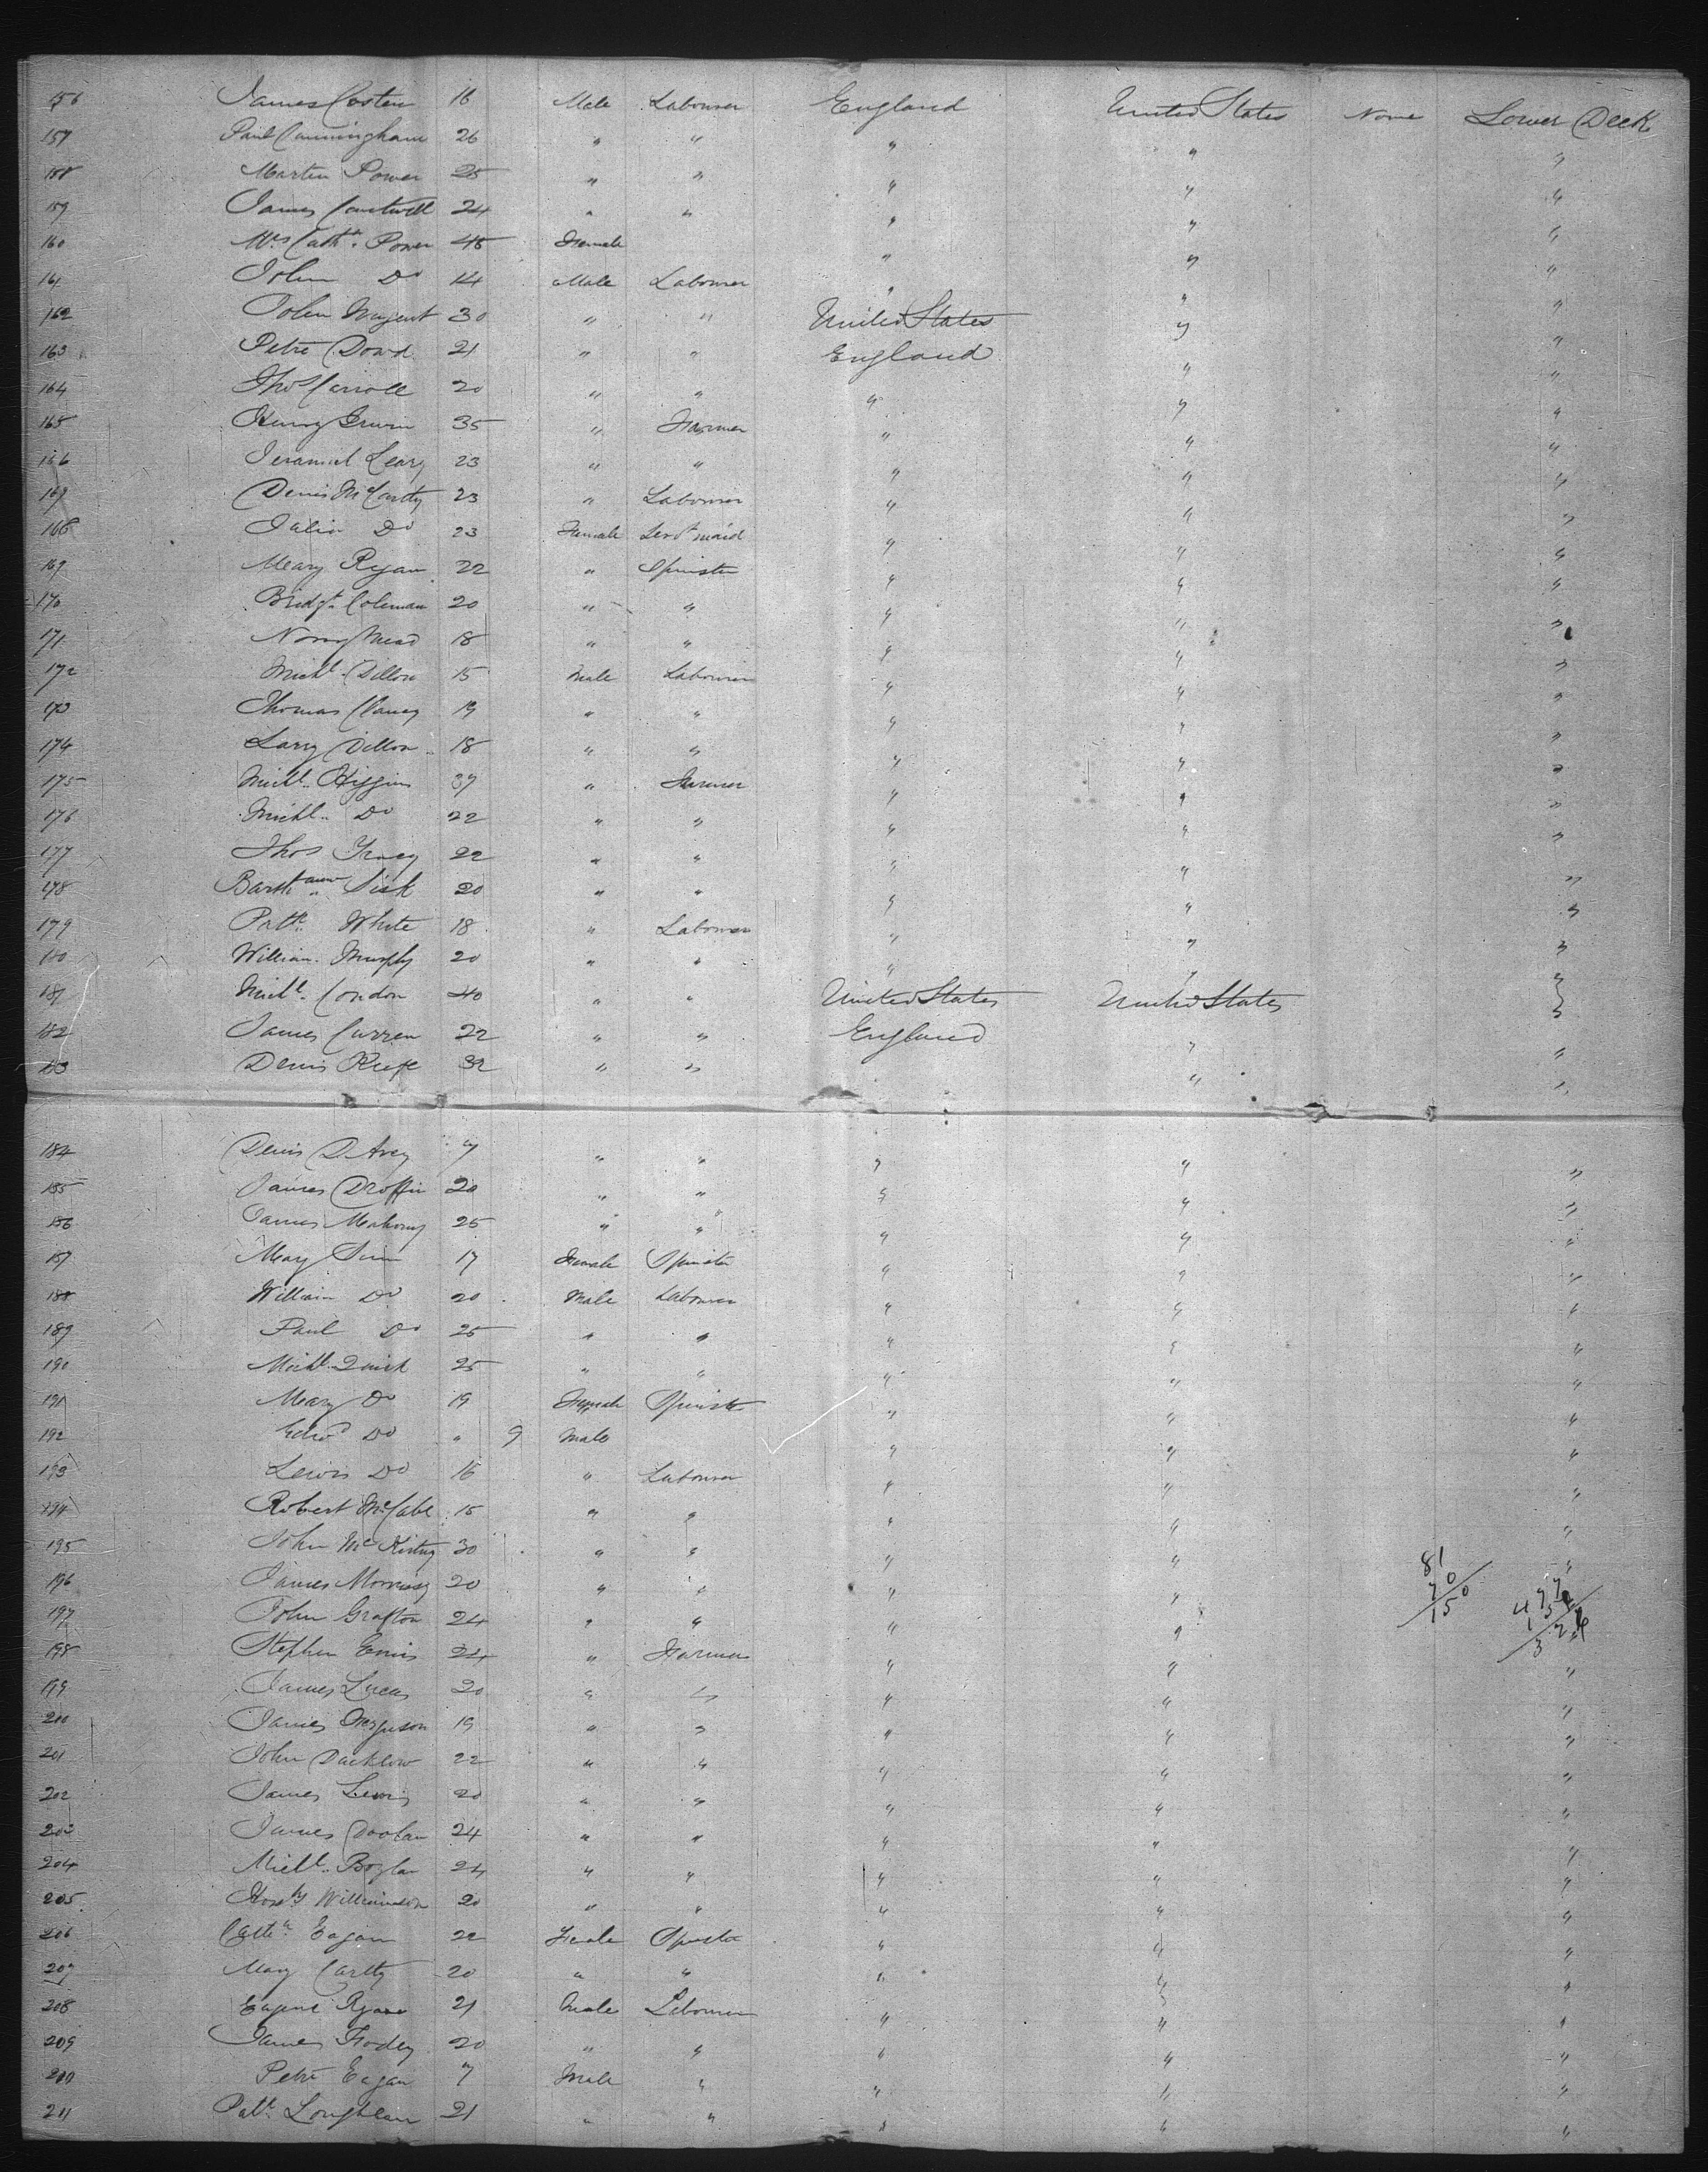 156 James Costen 16 Male Labourer England United States None Lower Deck
157 Paul Cunningham 26 " " " " "
158 Martin Power 25 " " " " "
159 James Cantwell 24 " " " " "
160 Mrs Cathn. Power 45 Female " " "
161 John Do 14 Male Labourer " " "
162 John Nugent 30 " " United States " "
163 Petre Dowd 21 " " England " "
164 Thos Carroll 20 " " " " "
165 Henry Erwin 35 " Farmer " " "
166 Jeramiel Leary 23 " " " " "
167 Denis McCarthy 23 " Labourer " " "
168 Julia Do 23 Female Servt maid " " "
169 Meary Ryan 22 " Spinster " " "
170 Bridgt. Coleman 20 " " " " "
171 Norry Mead 18 " " " " "
172 Michl. Dillon 15 Male Labourer " " "
173 Thomas Clancy 19 " " " " "
174 Larry Dillon 18 " " " " "
175 Michl. Higgins 37 " Farmer " " "
176 Michl. Do 22 " " " " "
177 Thos Tracy 22 " " " " "
178 Barth Sisk 20 " " " " "
179 Patk. White 18 " Labourer " " "
180 William Murphy 20 " " " " "
181 Michl. Condon 40 " " United States United States "
182 James Curren 22 " " England " "
183 Denis Keefe 32 " " " "
184 Denis D Arcy 7 " " " " "
185 James Droffin 20 " " " " "
186 James Mahony 25 " " " " "
187 Mary 17 Female Spinster " " "
188 William Do 20 Male Labourer " " "
189 Paul Do 25 " " " " "
190 Michl. Quirk 25 " " " " "
191 Meary Do 19 Female Spinster " " "
192 Edwd Do " 9 Male " " "
193 Lewis Do 16 " Labourer " " "
194 Robert McCabe 15 " " " " "
195 John Mc 30 " " " " "
81
70
150
196 James Morrissy 20 " " " " "
477
15
32
197 John Grafton 24 " " " "
198 Stephen Ennis 24 " Farmer " " "
199 James Lucas 20 " " " " "
200 James Ferguson 19 " " " " "
201 John Dacklow 22 " " " " "
202 James Lewis 20 " " " " "
203 James Doolan 24 " " " " "
204 Michl. Boylan 24 " " " " "
205 Williamson 20 " " " " "
206 Cathn. Eagan 22 Female Spinster " " "
207 Mary Cartty 20 " " " " "
208 Eugene Ryan 21 Male Labourer " " "
209 James Fodey 20 " " " " "
210 Petre Eagan 7 Male " " " "
211 Patk. Loughlan 21 " " " " "